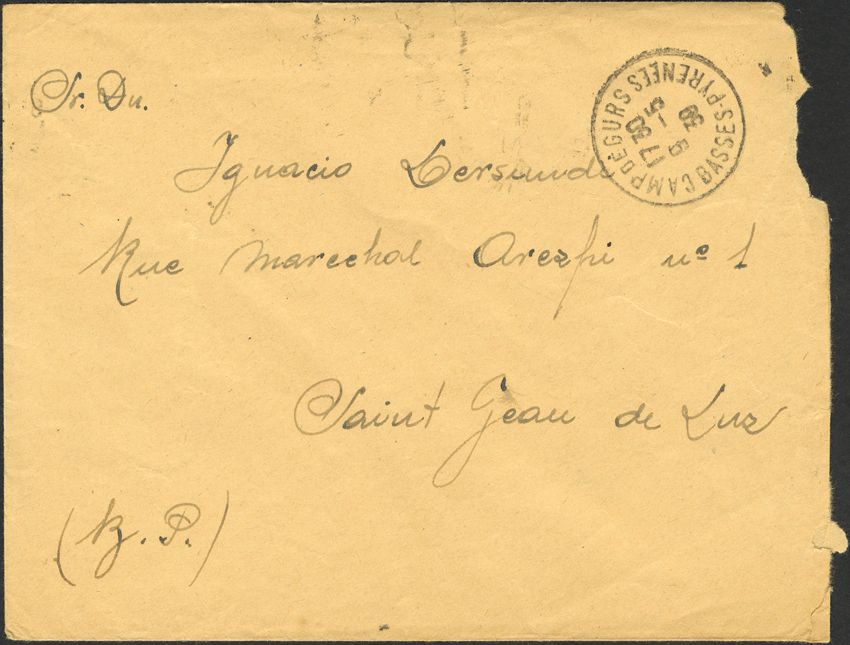 Sr. Dn.
CAMP DE GURS BASSES-PYRENEES
17 30
5 - 6
39
Ignacio Lersundi
Rue Marechal Arezpi nº 1
Saint Jean de Luz
(B. P.)